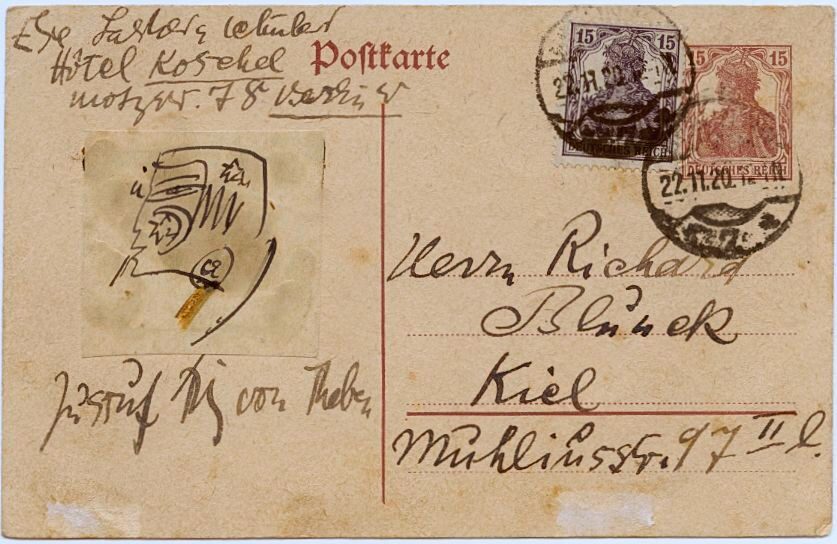 Else Lasker Schüler
Hôtel Koschel
motzstr. 78 Berlin W
Postkarte
15 15
DEUTSCHES REICH
15 15
DEUTSCHES REICH
22.11.20.
22.11.20.
Jussuf Prinz von Theben
Herrn Richard
Blunck
Kiel
Muhliusstr. 97 II l.